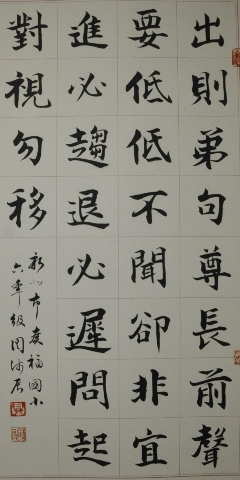 出則弟句尊長前聲
要低低不聞卻非宜
進必趨退必遲問起
對視勿移
新北市福国小
六年級周